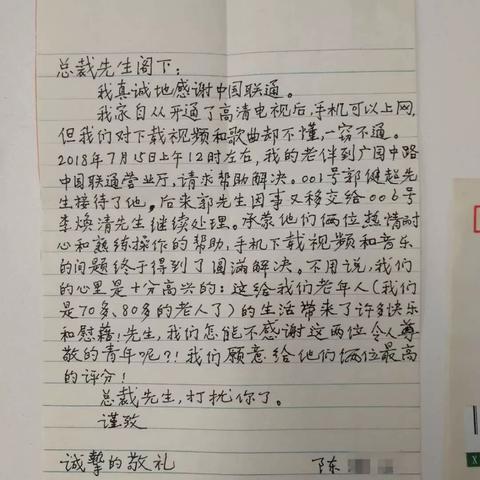 总裁先生阁下：
我真诚地感谢中国联通。
我家自从开通了高清电视后，手机可以上网，
但我们对下载视频和歌曲却不懂，一窍不通。
2018年7月15日上午12时左右，我的老伴到广园中路
中国联通营业厅，请求帮助解决。001号郭健超先
生接待了他，后来郭先生因事又移交给006号
李焕清先生继续处理。承蒙他们俩位热情耐
心和熟练操作的帮助，手机下载视频和音乐
的问题终于得到了圆满解决。不用说，我们的
心里是十分高兴的：这给我们老年人（我们
是70多、80多的老人了）的生活带来了许多快乐
和慰藉！先生，我们怎能不感谢这两位令人尊
敬的青年呢？！我们愿意给他们俩位最高
的评分！
总裁先生，打扰你了。
谨致
诚挚的敬礼
陈
X